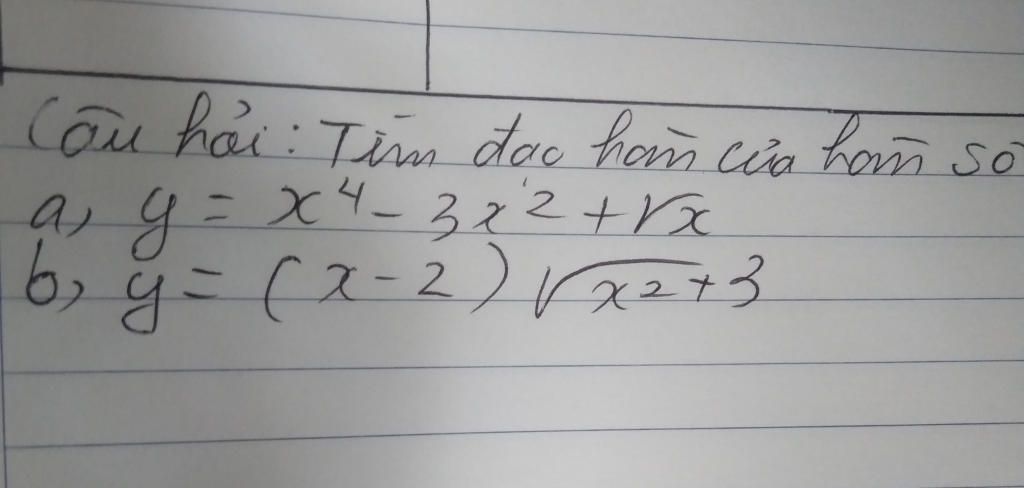 Câu hỏi: Tìm đạo hàm của hàm số
a, y = x⁴ - 3x² + √x
b, y = (x - 2) √x² + 3